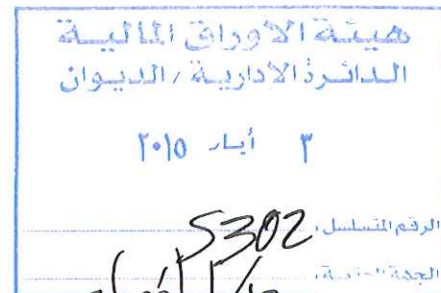 هيئة الاوراق المالية
الدائرة الادارية / الديوان
٣ أيار ٢٠١٥
الرقم المتسلسل: 5302
الجهة